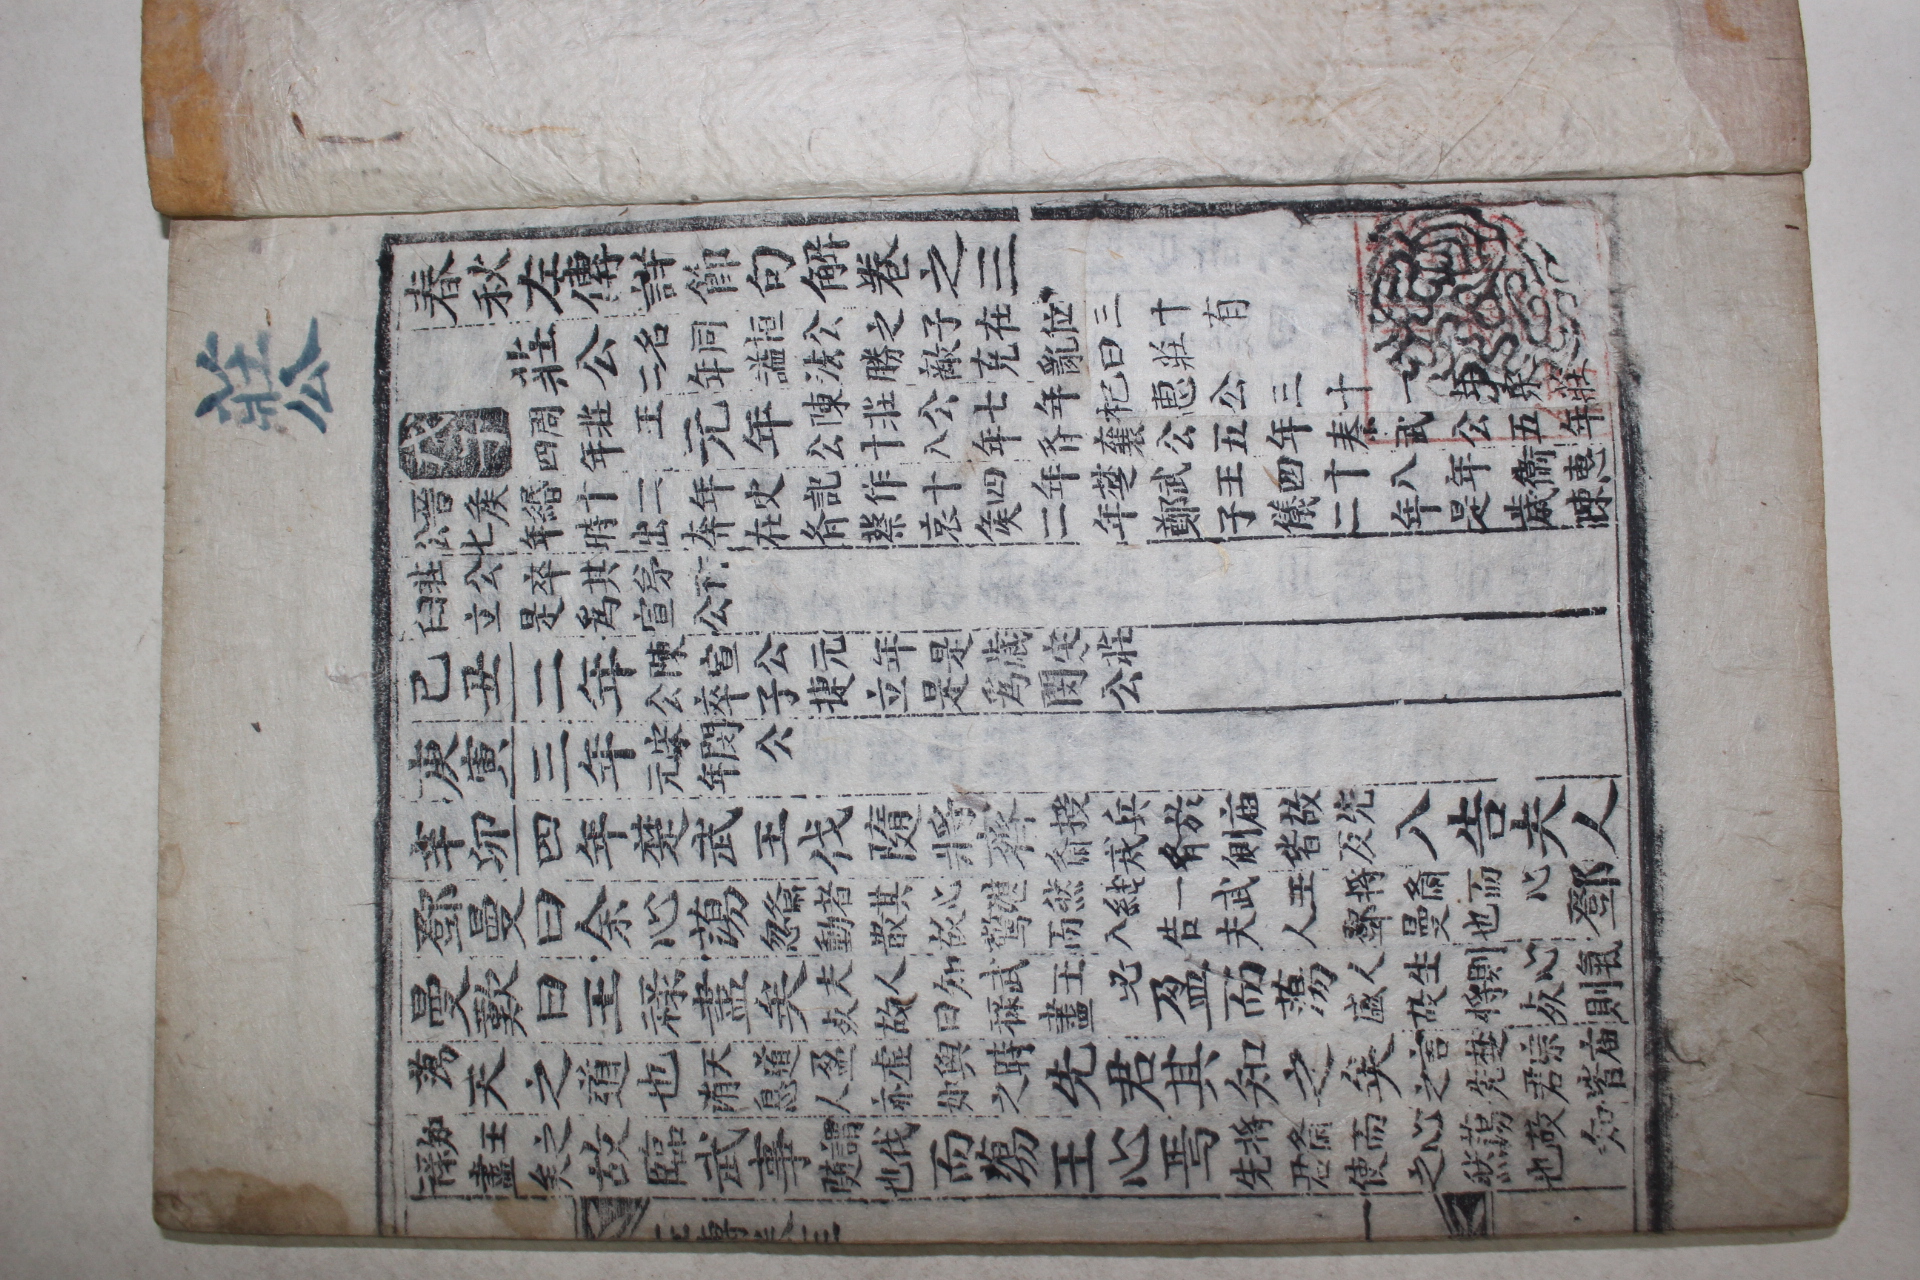 莊公
春秋左傳詳節句解卷之三
莊公 名同桓公之子在位三十有二年謚法勝敵克亂曰莊
戊子 周莊王四年 元年 陳莊公七年杞惠公三十一年宋莊公十八年齊襄公五年秦武公五年
晉侯緡十二年史記作十四年楚武王四十八年衞惠公七年時出奔在齊蔡哀侯二年鄭子儀二年是歲陳
莊公卒其弟杵臼立是爲宣公
己丑 二年 陳宣公元年是歲宋莊公卒子捷立是爲閔公
庚寅 三年 宋閔公元年
辛卯 四年楚武王伐隨將齊 授兵於庙故先齋戒齊側皆反 入告夫人
鄧曼曰余心蕩 蕩者其心 然 一武王將齋而心忽動散故驚而入告夫人鄧曼也 鄧
曼歎曰王祿盡矣 夫人知武王必死故曰祿盡 盈而蕩 人生則心氣盛故將死則
蕩 天之道也 天道盈虛與時消息人亦如之 先君其知之矣 言楚宗庙之先君皆
知王之祿盡矣 故臨武事 謂伐隨也 而蕩王心焉 將齋而心蕩故知先君使之然也
左傳卷三
一